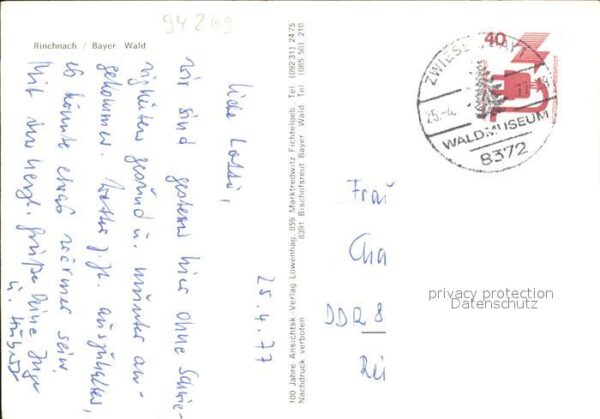 94 269
Rinchnach / Bayer. Wald
25.4.77
wir sind gestern hier ohne Schwie-
rigkeiten gesund u. munter an-
gekommen. Wetter z.Zt. auszuhalten,
es könnte etwas wärmer sein.
Mit herzl. Grüße Deine Inge
u.
100 Jahre Ansichtsk. Verlag Löwenhag, 859 Marktredwitz, Fichtelgeb. Tel. (09231) 2475
8391 Bischofsreut Bayer. Wald. Tel. (085 50) 210
Nachdruck verboten
40
ZWIESEL
25.-4. 77
WALDMUSEUM
8372
Frau
Cha
DDR 8
Rei
privacy protection
Datenschutz